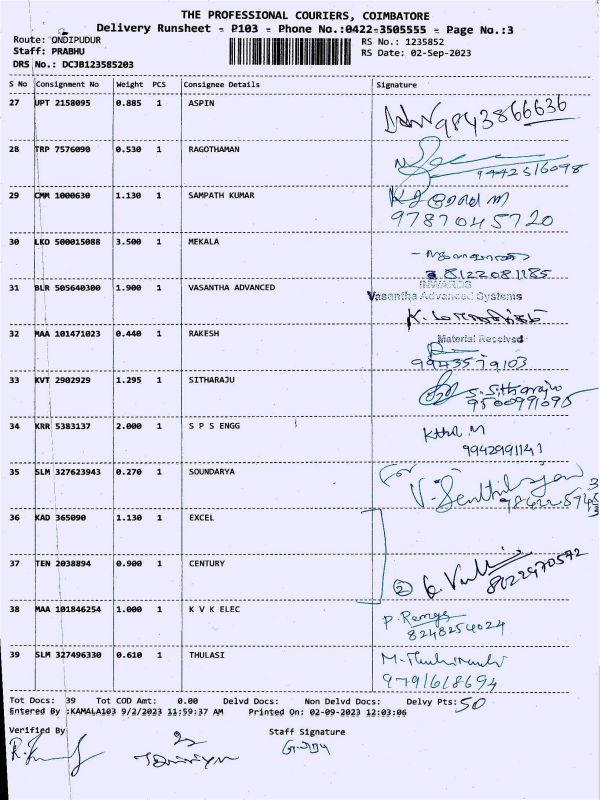 THE PROFESSIONAL COURIERS, COIMBATORE
Delivery Runsheet - P103 - Phone No.:0422-3505555 - Page No.:3
Route: ONDIPUDUR
RS No.: 1235852
Staff: PRABHU
RS Date: 02-Sep-2023
DRS No.: DCJB123585203
S No Consignment No Weight PCS Consignee Details Signature
27 UPT 2158095 0.885 1 ASPIN 9843866636
28 TRP 7576090 0.530 1 RAGOTHAMAN 9442516098
29 CMM 1000630 1.130 1 SAMPATH KUMAR
9787045720
30 LKO 500015088 3.500 1 MEKALA
8122081185
31 BLR 505640300 1.900 1 VASANTHA ADVANCED
INWARDS
Vasantha Advanced Systems
Material Received
32 MAA 101471023 0.440 1 RAKESH
9943579103
33 KVT 2902929 1.295 1 SITHARAJU S. Sitharaju
9500991095
34 KRR 5383137 2.000 1 S P S ENGG
9942991141
35 SLM 327623943 0.270 1 SOUNDARYA for
V. Senthilrajan
36 KAD 365090 1.130 1 EXCEL
37 TEN 2038894 0.900 1 CENTURY 2
38 MAA 101846254 1.000 1 K V K ELEC
8248254024
39 SLM 327496330 0.610 1 THULASI
9791618694
Tot Docs: 39 Tot COD Amt: 0.00 Delvd Docs: Non Delvd Docs: Delvy Pts: 50
Entered By :KAMALA103 9/2/2023 11:59:37 AM Printed On: 02-09-2023 12:03:06
Verified By Staff Signature